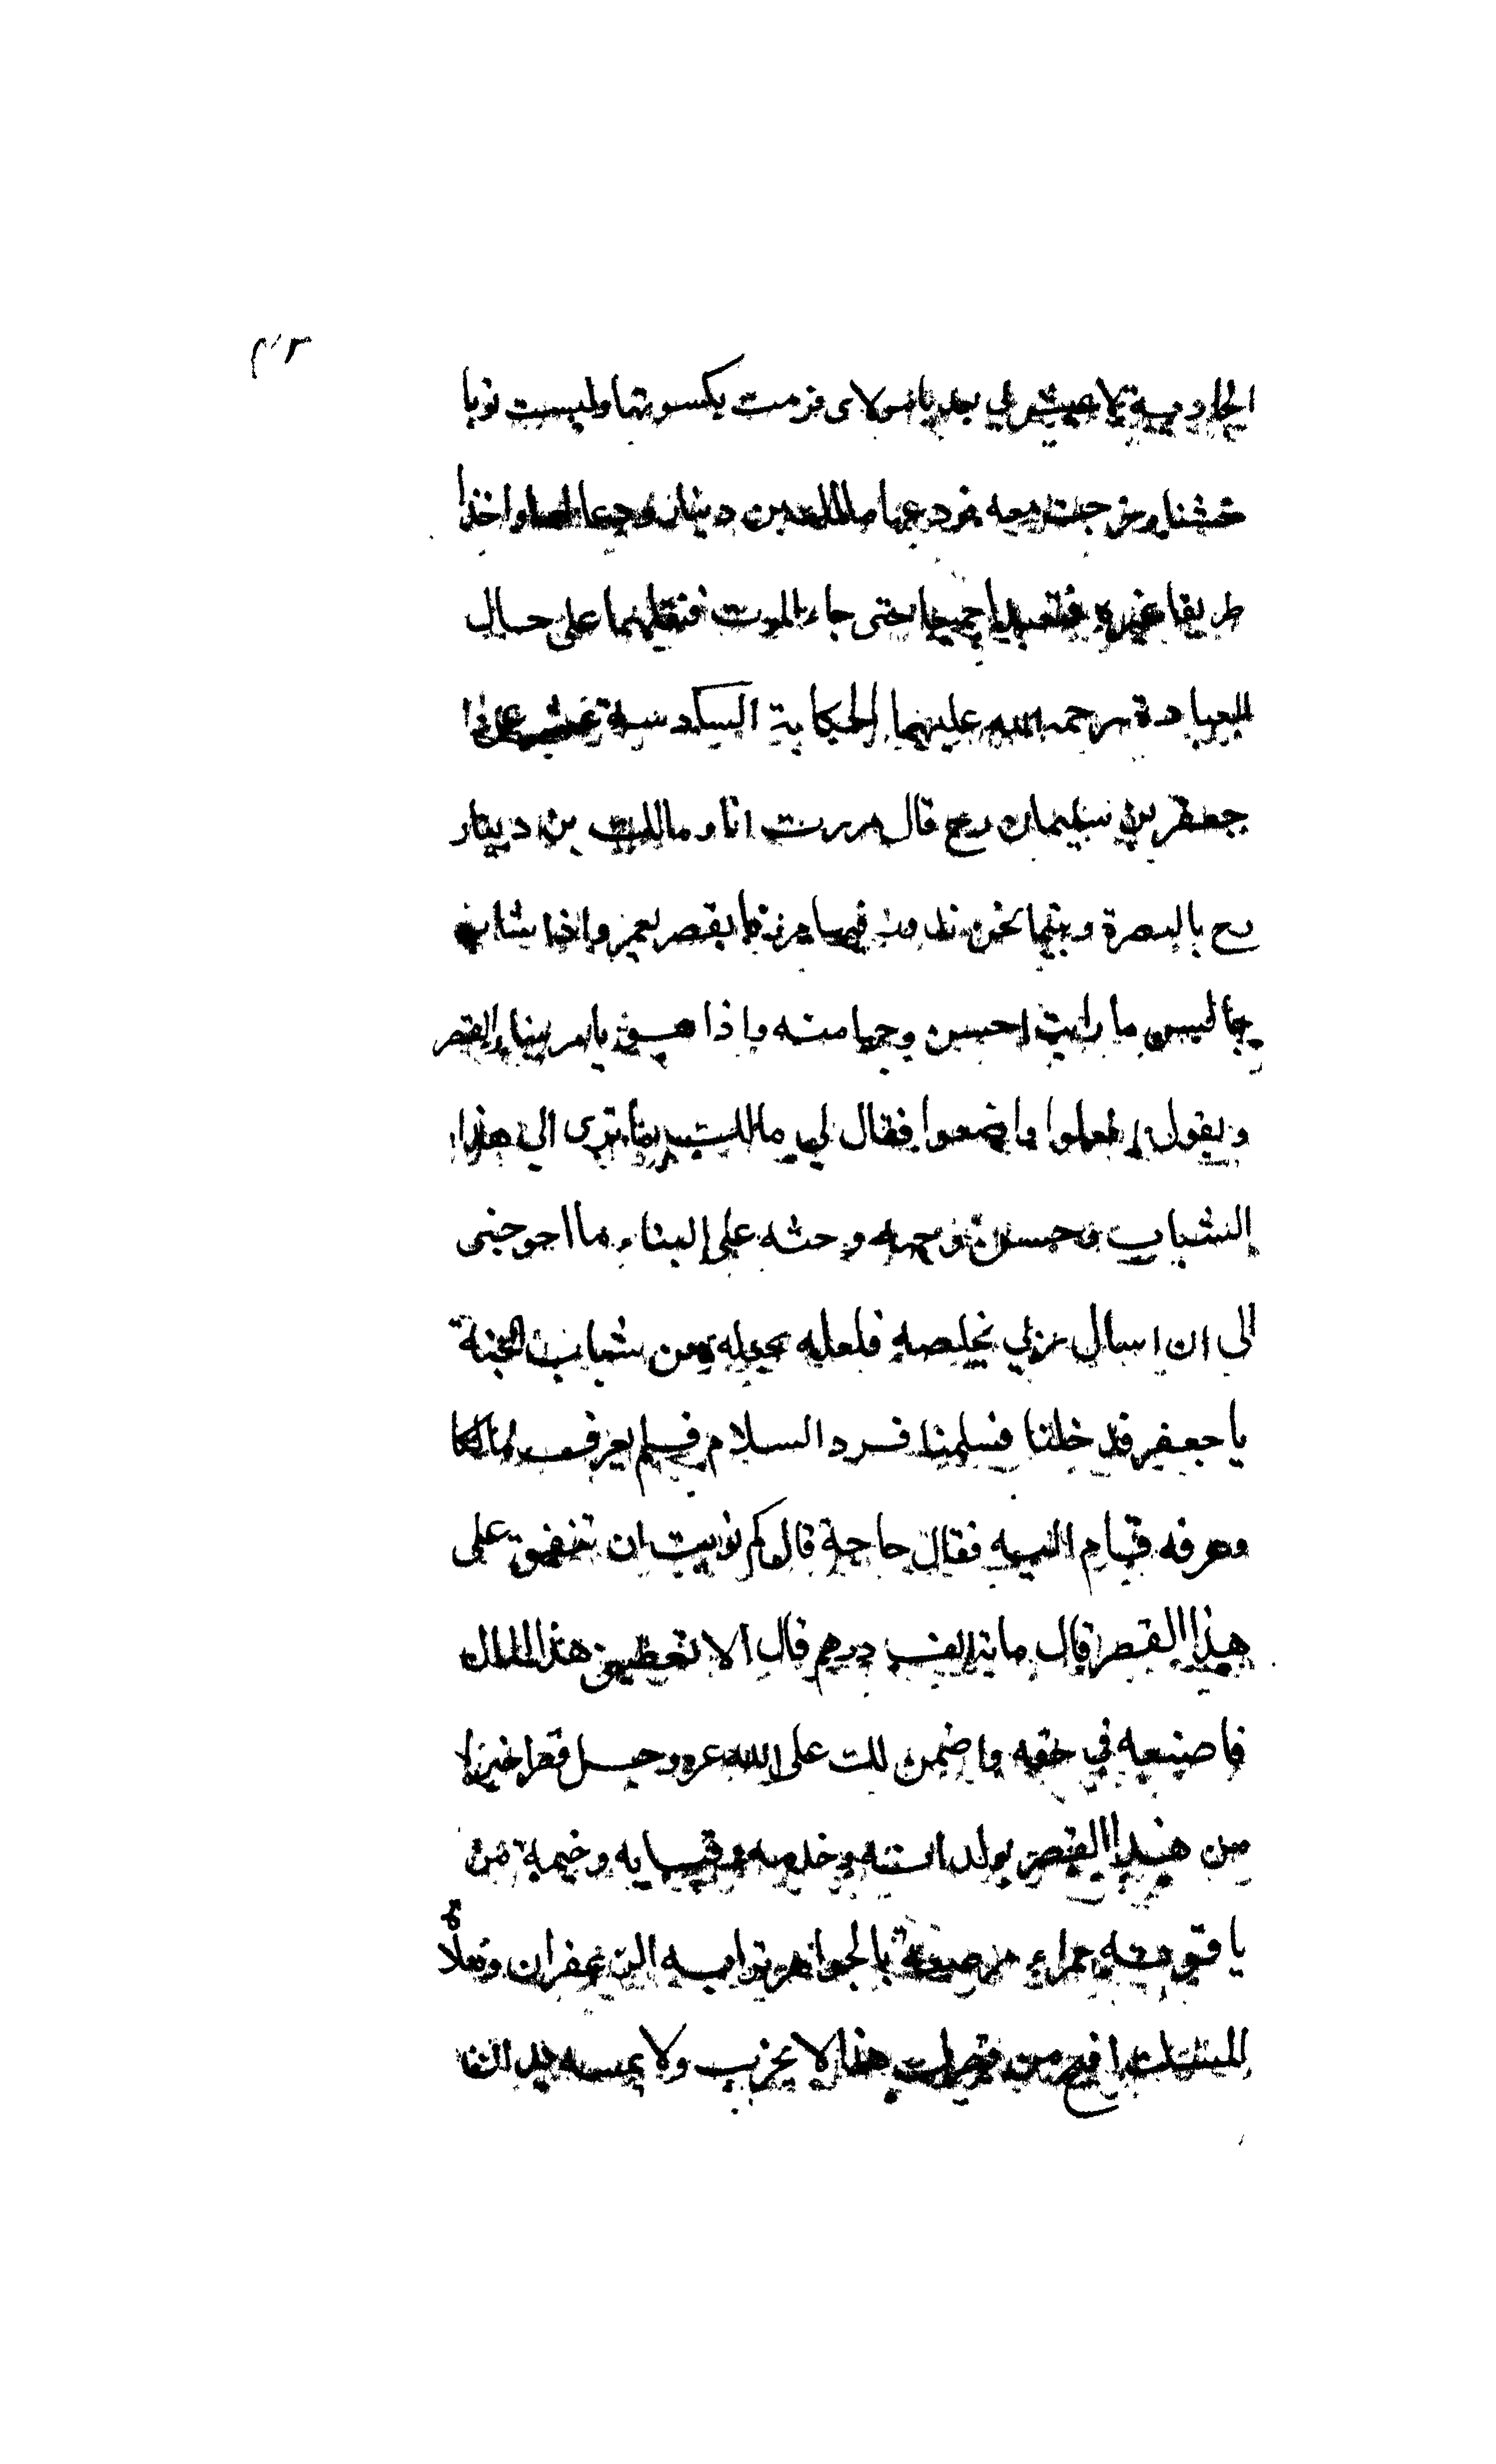 الجارية لا عيش لي بعد يا مولاي فرمت بكسوتها ولبست ثوبا
خشنا وخرجت معه فودعها مالك بن دينار ودعا لهما واخذا
طريقا غيره فتعبدا جميعا حتى جاء الموت فنقلهما على حال
العبادة رحمه الله عليهما الحكاية السادسة عشر عن
جعفر بن سليمان رح قال مررت انا ومالك بن دينار
رح بالبصرة وبينما نحن ندور فيها مررنا بقصر يعمر واذا شاب
جالس ما رايت احسن وجها منه واذا هو يامر ببناء القصر
ويقول افعلوا واصنعوا فقال لي مالك اما ترى الى هذا
الشباب وحسن وجهه وحثه على البناء ما احوجنى
الى ان اسال ربي يخلصه فلعله يجعله من شباب الجنة
يا جعفر فدخلنا فسلمنا فرد السلام فلم يعرف مالكا
وعرفه فقام اليه فقال حاجة قال كم نويت ان تنفق على
هذا القصر قال ماية الف درهم قال الا تعطينى هذا المال
فاصنعه في حقه واضمن لك على الله عز وجل قصرا خيرا
من هذا القصر بولدانه وخدمه وقبابه وخيمة من
ياقوتة حمراء مرصعة بالجواهر ترابه الزعفران وملاطه
المسك افيح من قصرك هذا لا يخرب ولا يمسه يدان